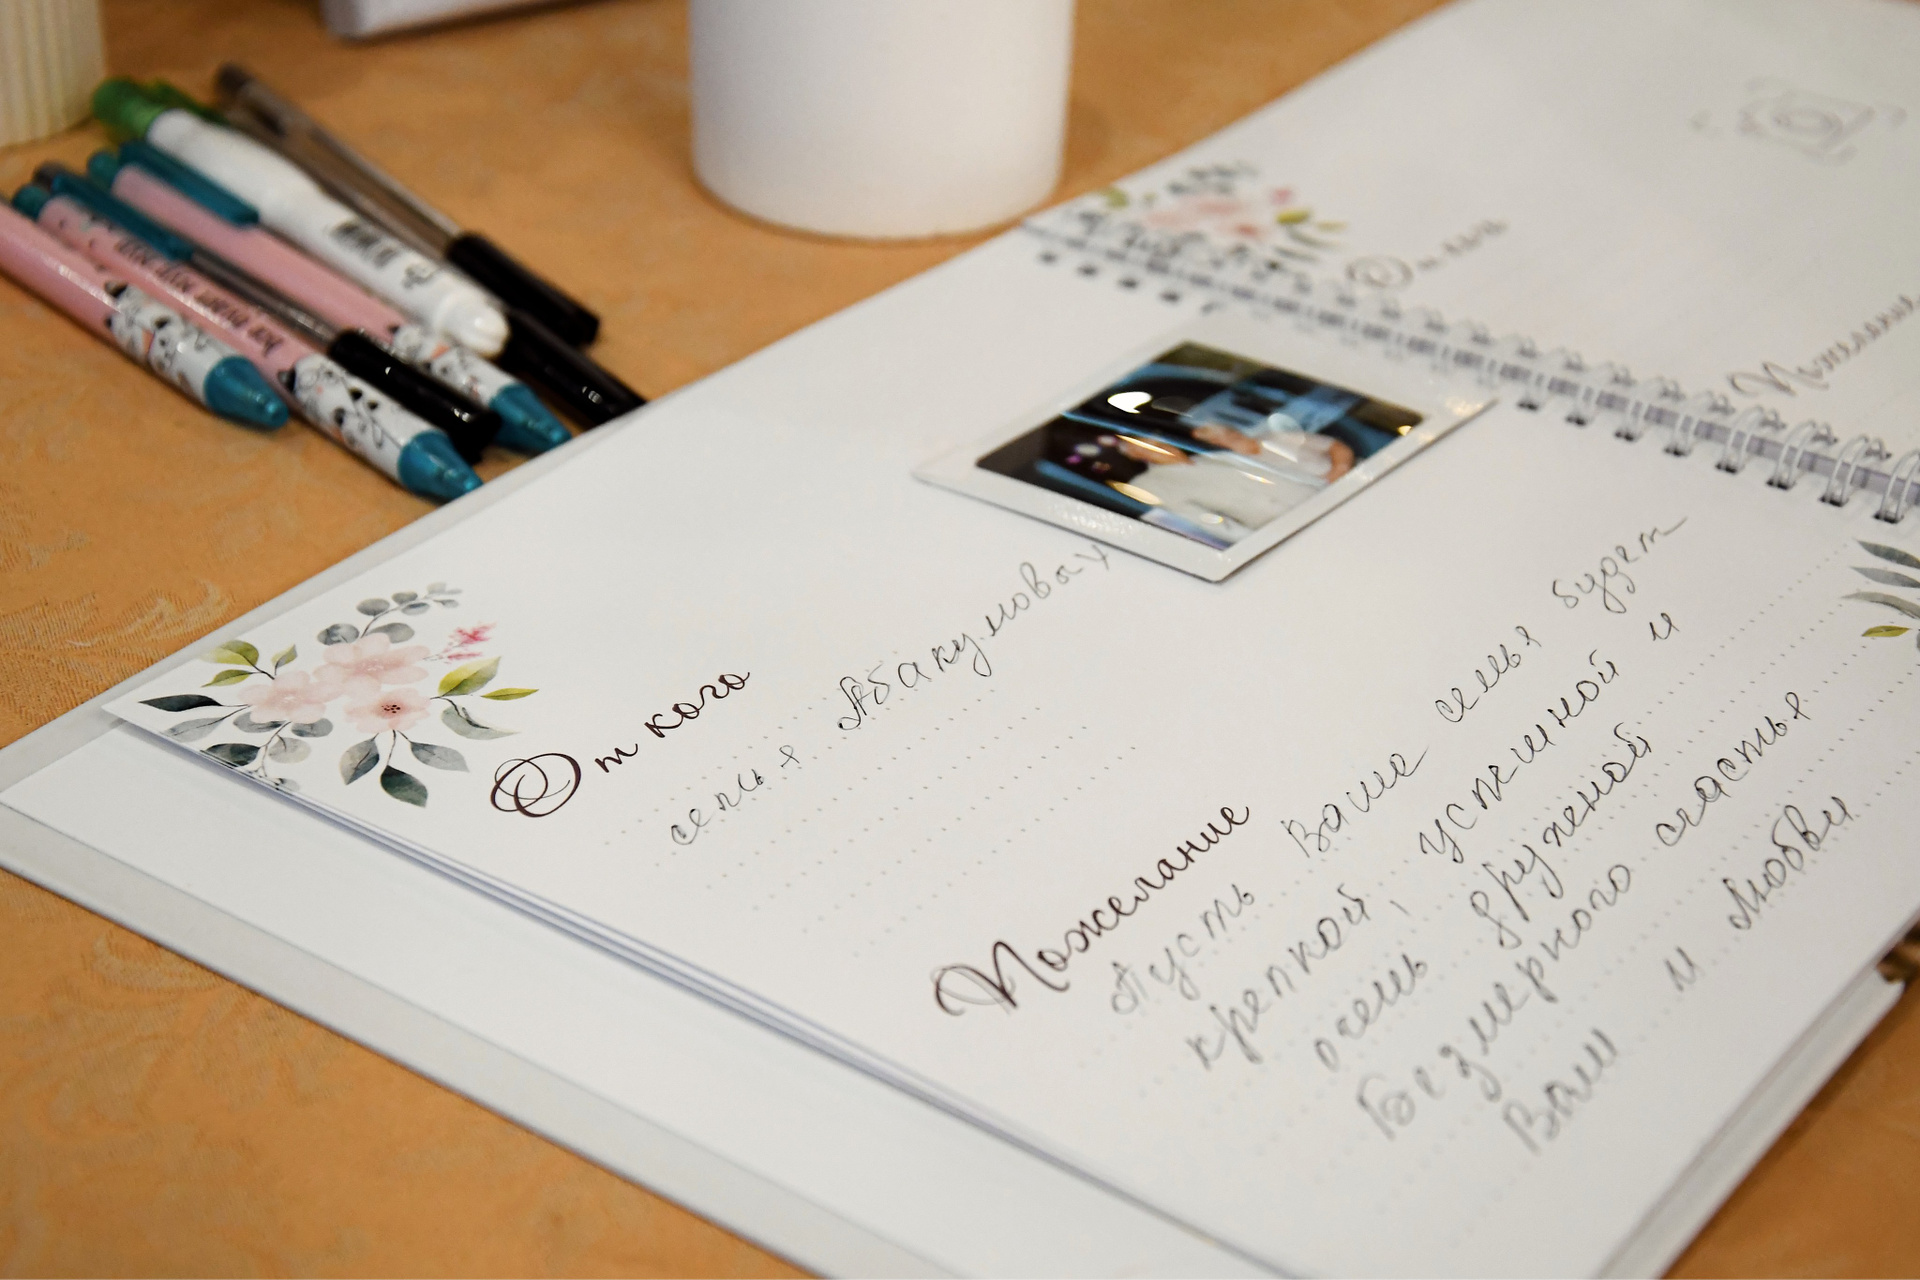 От кого
семья Абакумовых
Пожелание
Пусть Ваша семья будет
крепкой, успешной и
очень дружной
Безмерного счастья
Вам и Любви
От кого
Пожелание